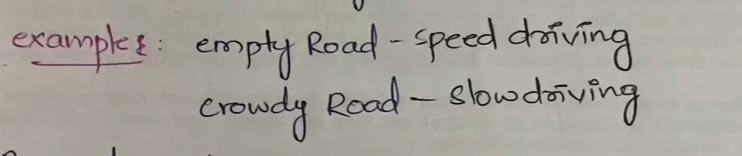 examples: empty Road - speed driving
crowdy Road - slow driving